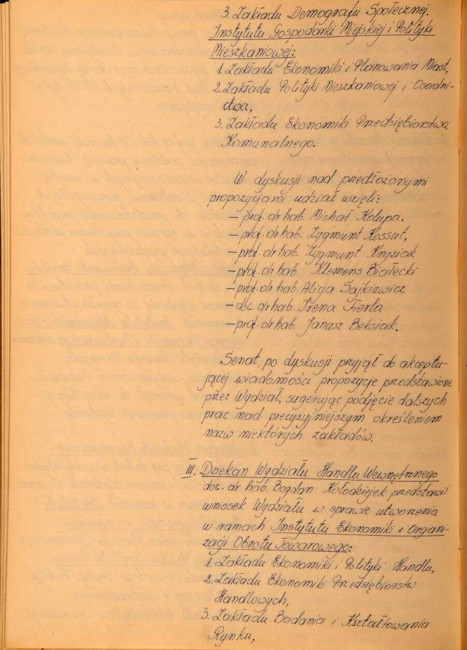 3. Zakładu Demografii Społecznej.
Instytutu Gospodarki Miejskiej i Polityki
Mieszkaniowej:
1. Zakładu Ekonomiki i Planowania Miast,
2. Zakładu Polityki Mieszkaniowej i Osadni-
ctwa,
3. Zakładu Ekonomiki Przedsiębiorstwa
Komunalnego.
W dyskusji nad przedłożonymi
propozycjami udział wzięli:
– prof. dr hab. Michał Kolupa.
– prof. dr hab. Zygmunt Kossut,
– prof. dr hab. Zygmunt Knyziak
– prof. dr hab. Klemens Białecki
– prof. dr hab. Alicja Sajkiewicz
– doc. dr hab. Irena Fierla
– prof. dr hab. Janusz Beksiak.
Senat, po dyskusji przyjął do akceptu-
jącej wiadomości propozycje przedstawione
przez Wydział, sugerując podjęcie dalszych
prac nad precyzyjniejszym określeniem
nazw niektórych zakładów.
III. Dziekan Wydziału Handlu Wewnętrznego
doc. dr hab. Bogdan Kołodziejek przedstawił
wniosek Wydziału w sprawie utworzenia
w ramach Instytutu Ekonomiki i Organi-
zacji Obrotu Towarowego:
1. Zakładu Ekonomiki i Polityki Handlu,
2. Zakładu Ekonomiki Przedsiębiorstw
Handlowych,
3. Zakładu Badania i Kształtowania
Rynku,